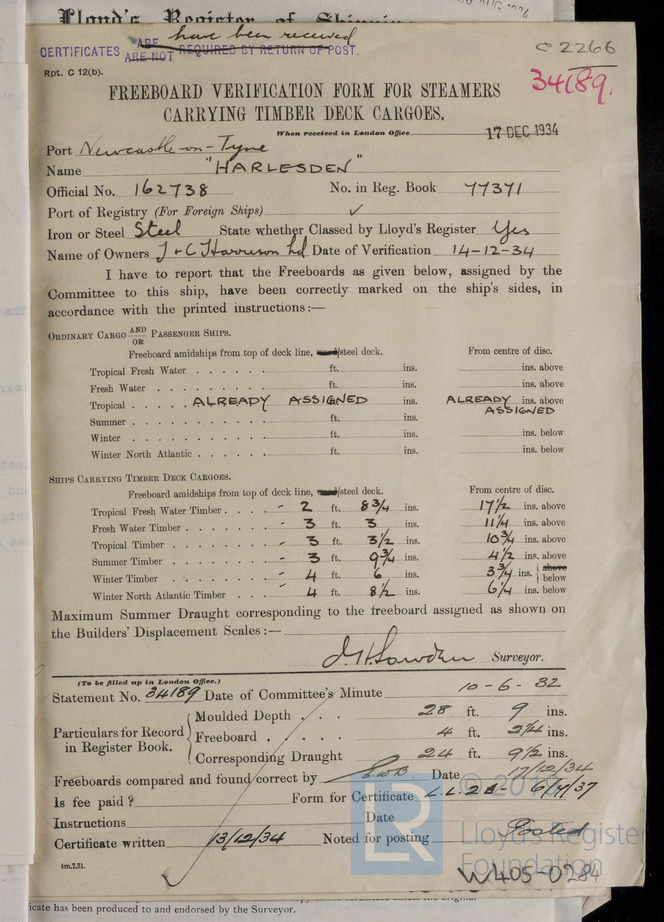 Lloyd's Register of Shipping
have been received
CERTIFICATES ARE ARE NOT REQUIRED BY RETURN OF POST.
C 2266
Rpt. C 12(b).
34189.
FREEBOARD VERIFICATION FORM FOR STEAMERS
CARRYING TIMBER DECK CARGOES.
When received in London Office 17 DEC 1934
Port Newcastle-on-Tyne
Name "HARLESDEN"
Official No. 162738 No. in Reg. Book 77371
Port of Registry (For Foreign Ships) ✓
Iron or Steel Steel State whether Classed by Lloyd's Register Yes
Name of Owners J & C Harrison Ld Date of Verification 14-12-34
I have to report that the Freeboards as given below, assigned by the
Committee to this ship, have been correctly marked on the ship's sides, in
accordance with the printed instructions:—
ORDINARY CARGO AND OR PASSENGER SHIPS.
Freeboard amidships from top of deck line, wood/steel deck. From centre of disc.
Tropical Fresh Water . . . . . . ft. ins. ins. above
Fresh Water . . . . . . . . . . ft. ins. ins. above
Tropical . . . . . ALREADY ASSIGNED ins. ALREADY ASSIGNED ins. above
Summer . . . . . . . . . . . . ft. ins.
Winter . . . . . . . . . . . . ft. ins. ins. below
Winter North Atlantic . . . . . . ft. ins. ins. below
SHIPS CARRYING TIMBER DECK CARGOES.
Freeboard amidships from top of deck line, wood/steel deck. From centre of disc.
Tropical Fresh Water Timber . . . - 2 ft. 8 3/4 ins. 17 1/2 ins. above
Fresh Water Timber . . . . . . - 3 ft. 3 ins. 11 1/4 ins. above
Tropical Timber . . . . . . . - 3 ft. 3 1/2 ins. 10 3/4 ins. above
Summer Timber . . . . . . . - 3 ft. 9 3/4 ins. 4 1/2 ins. above
Winter Timber . . . . . . . - 4 ft. 6 ins. 3 3/4 ins. { above below
Winter North Atlantic Timber . . . 4 ft. 8 1/2 ins. 6 1/4 ins. below
Maximum Summer Draught corresponding to the freeboard assigned as shown on
the Builders' Displacement Scales:—
Surveyor.
(To be filled up in London Office.)
Statement No. 34189 Date of Committee's Minute 10-6-32
Particulars for Record in Register Book.
Moulded Depth . . . 28 ft. 9 ins.
Freeboard . . . . . 4 ft. 2 1/4 ins.
Corresponding Draught 24 ft. 9 1/2 ins.
Freeboards compared and found correct by E.W.B. Date 17/12/34
Is fee paid? Form for Certificate L.L. 2B - 6/7/37
Instructions Date
Certificate written 13/12/34 Noted for posting Posted
4m,7,31.
W405-0284
Lloyd's Register
Foundation
icate has been produced to and endorsed by the Surveyor.